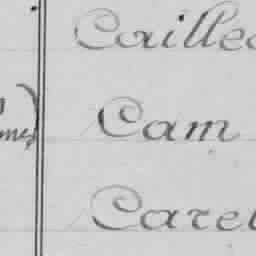 Caillea
Cam
Carel